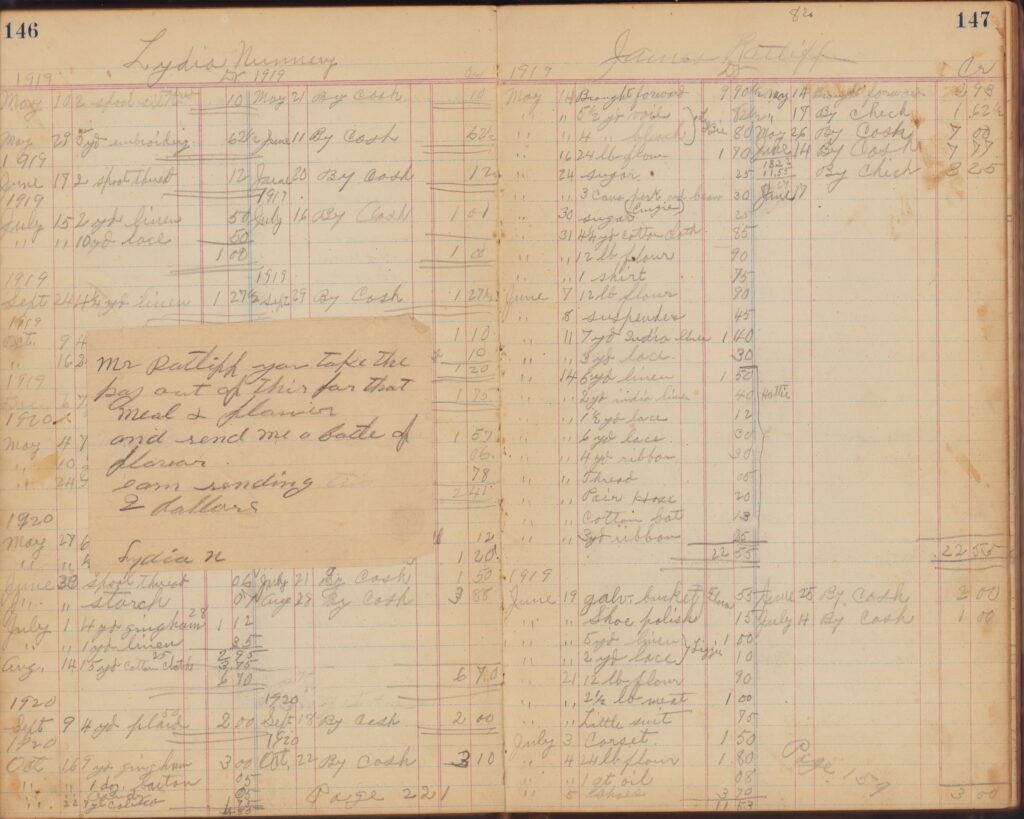 146
Lydia Nunnery
1919 Dr 1919
May 10 2 spool silk 10 May 21 By Cash 10
May 29 5 yd embroiding 62½ June 11 By Cash 62½
1919
June 17 2 spool thread 12 June 20 By Cash 12
1919 1919
July 15 2 yd linen 50 July 16 By Cash 1 01
" " 10 yd lace 50
1 00 1 0
1919 1919
Sept 24 4¼ yd linen 1 27½ Sept 29 By Cash 1 27½
1919
Oct. 9 4 1 10
" 16 2 10
1 20
1919
Dec 6 7 1 75
1920
May 4 7 1 57
" 10 06
" 24 78
2 41
1920
May 27 6 12
" " 1 20
Mr Ratliff you take the
pay out of this for that
meal & flower
and send me a batle of
flowar
eam sending
2 dallors
Lydia N
June 30 spool thread 06 July 21 By Cash 1 50
" " starch 07 Aug 28 By Cash 3 88
July 1 4 yd gingham 28 1 12
" " 1 yd linen 35
2 95
Aug, 14 15 yd cotton cloth 25 3 75
6 70 6 70
1920 1920
Sept 9 4 yd plaid 50 2 00 Sept 18 By Cash 2 00
1920 1920
Oct. 16 9 yd gingham 3 00 Oct, 22 By Cash 3 10
" " 1 doz button 05
" 22 calico
Page 221
147
James Ratliff
1919 Dr Cr
May 14 Brought forward 9 90½ May 14 Brought forward 2 98
" " 5½ yd voil 82½ " 17 By Check 1 62½
" " 4 " bleach 80 May 26 By Cash 7 00
" 16 24 lb flour 1 90 June 14 By Cash 7 77
" 24 sugar 25 By Check 3 25
" " 3 Cans pork and beans 30 June 17
" 30 sugar (Lizzie) 25
" 31 4¼ yd cotton cloth 85
" " 12 lb flour 90
" " 1 shirt 75
June 7 12 lb flour 90
" 8 suspender 45
" 11 7 yd India linen 1 40
" " 3 yd lace 30
" 14 6 yd linen 1 50
" " 2 yd india line 40 Hattie
" " 1½ yd lace 12
" " 6 yd lace 30
" " 4 yd ribbon 30
" " Thread 05
" " Pair Hose 20
" " Cotton bat 13
" " 3 yd ribbon 25
22 55 22 55
1919
June 19 galv. bucket Elma 55 June 25 By Cash 2 00
" " Shoe polish 15 July 4 By Cash 1 00
" " 5 yd linen 1 00
" " 2 yd lace Lizzie 10
" 21 12 lb flour 90
" " 2½ lb meat 1 00
" " Little suit 75
July 3 Corset 1 50
" 4 24 lb flour 1 80
" " 1 qt oil 08
" 5 Shoes 3 70
11 53 3 00
Page 157